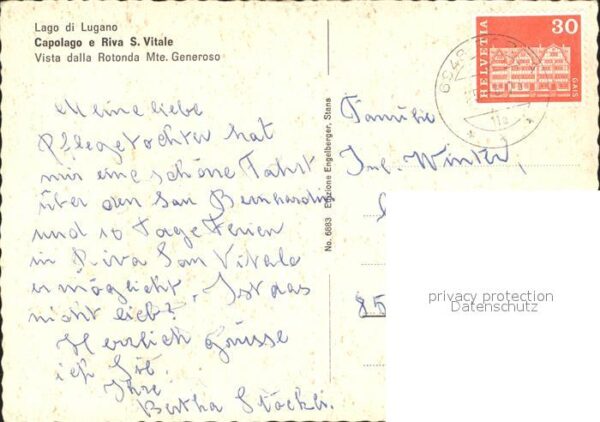 Lago di Lugano
Capolago e Riva S. Vitale
Vista dalla Rotonda Mte. Generoso
Meine liebe
Pflegetochter hat
mir eine schöne Fahrt
über den San Bernhardin
und 10 Tage Ferien
in Riva San Vitale
ermöglicht. Ist das
nicht lieb?
Herzlich Grüsse
ich Sie
Ihre
Bertha Stöckli.
No. 6883 Edizione Engelberger, Stans
HELVETIA
30
GAIS
11a
Familie
Winter,
85
privacy protection
Datenschutz